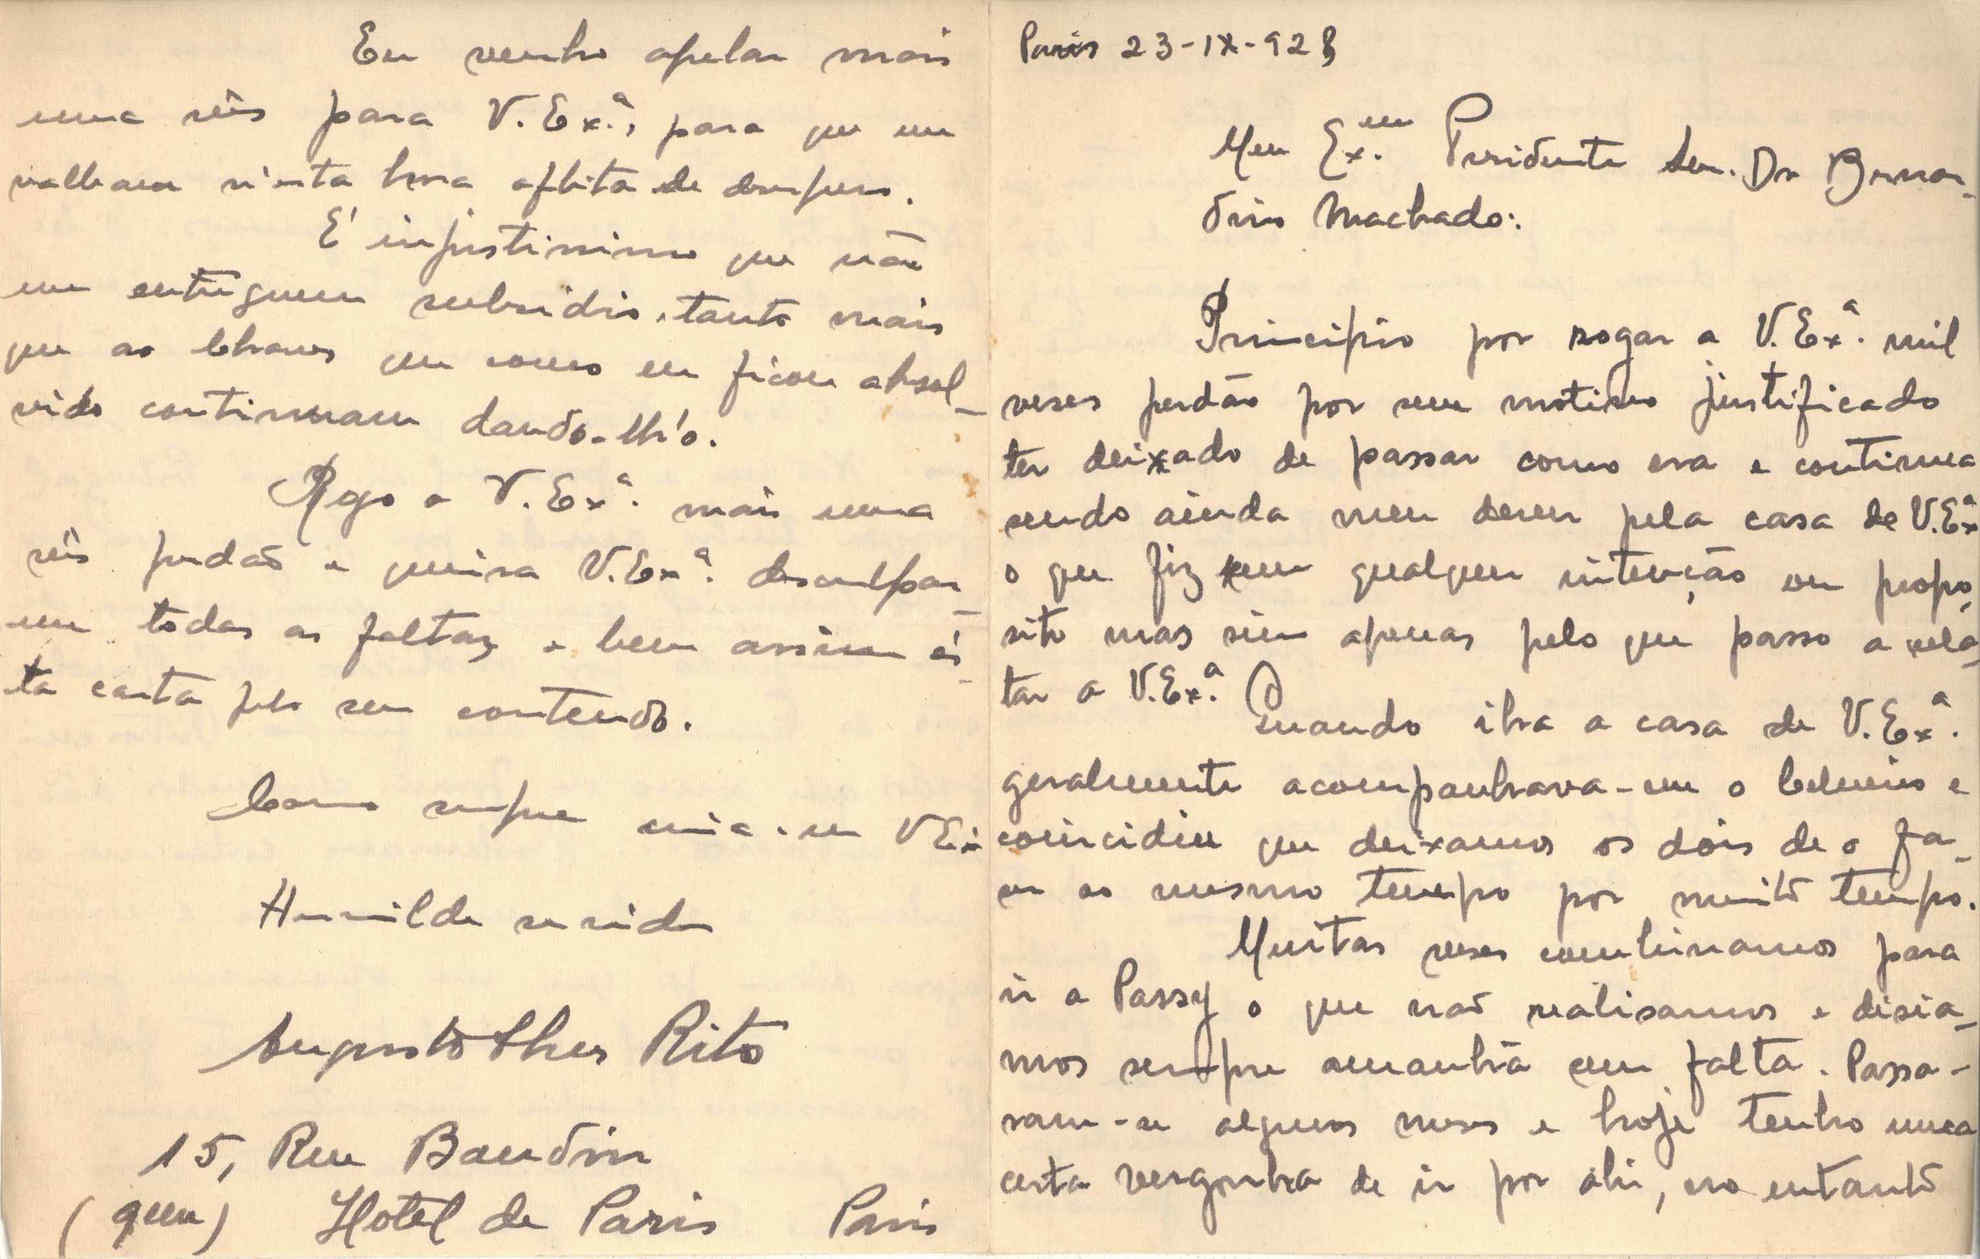 Paris 23-IX-928
Meu Ex.mo Presidente Sen. Dr Bernar-
dino Machado:
Principio por rogar a V. Exª. mil
veses perdão por sem motivo justificado
ter deixado de passar como era e continua
sendo ainda meu dever pela casa de V. Exª
o que fiz sem qualquer intenção ou propo-
sito mas sim apenas pelo que passo a rela-
tar a V. Exª.
Quando iha a casa de V. Exª.
geralmente acompanhava-me o e
coincidiu que deixamos os dois de o fa-
er ao mesmo tempo por muito tempo.
Muitas veses combinamos para
ir a Passy o que não realisamos e disia-
mos sempre amanhã sem falta. Passa-
ram-se alguns meses e hoje tenho uma
certa vergonha de ir por ahi, no entanto
Eu venho apelar mais
uma vês para V. Exª., para que me
valham n'esta hora aflita de
E' injustissimo que não
me entreguem subsidio, tanto mais
que ao que como eu ficou absol-
vido continuam dando-lh'o.
Rogo a V. Exª. mais uma
vês perdão e queira V. Exª. desculpar-
me todas as faltas e bem assim és-
ta carta pelo seu contendo.
Como sempre V Ex
Humilde servidor
Augusto Rito
15, Rue Baudin
Hotel de Paris Paris